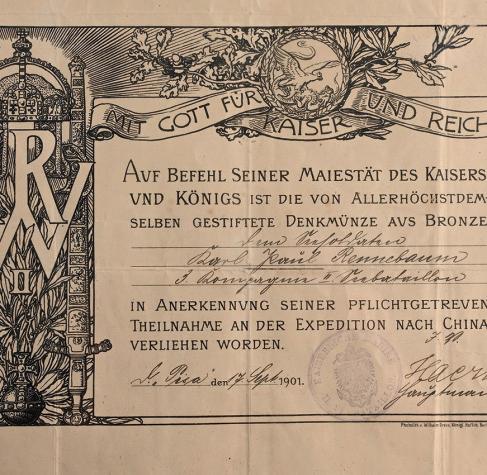 MIT GOTT FÜR KAISER UND REICH
W
R
II
AUF BEFEHL SEINER MAIESTÄT DES KAISERS
UND KÖNIGS IST DIE VON ALLERHÖCHSTDEM-
SELBEN GESTIFTETE DENKMÜNZE AUS BRONZE
dem Seesoldaten
Karl Paul Rennebaum
3. Kompagnie II. Seebataillon
IN ANERKENNUNG SEINER PFLICHTGETREUEN
THEILNAHME AN DER EXPEDITION NACH CHINA
VERLIEHEN WORDEN.
den 17 Sept 1901.
Hauptman